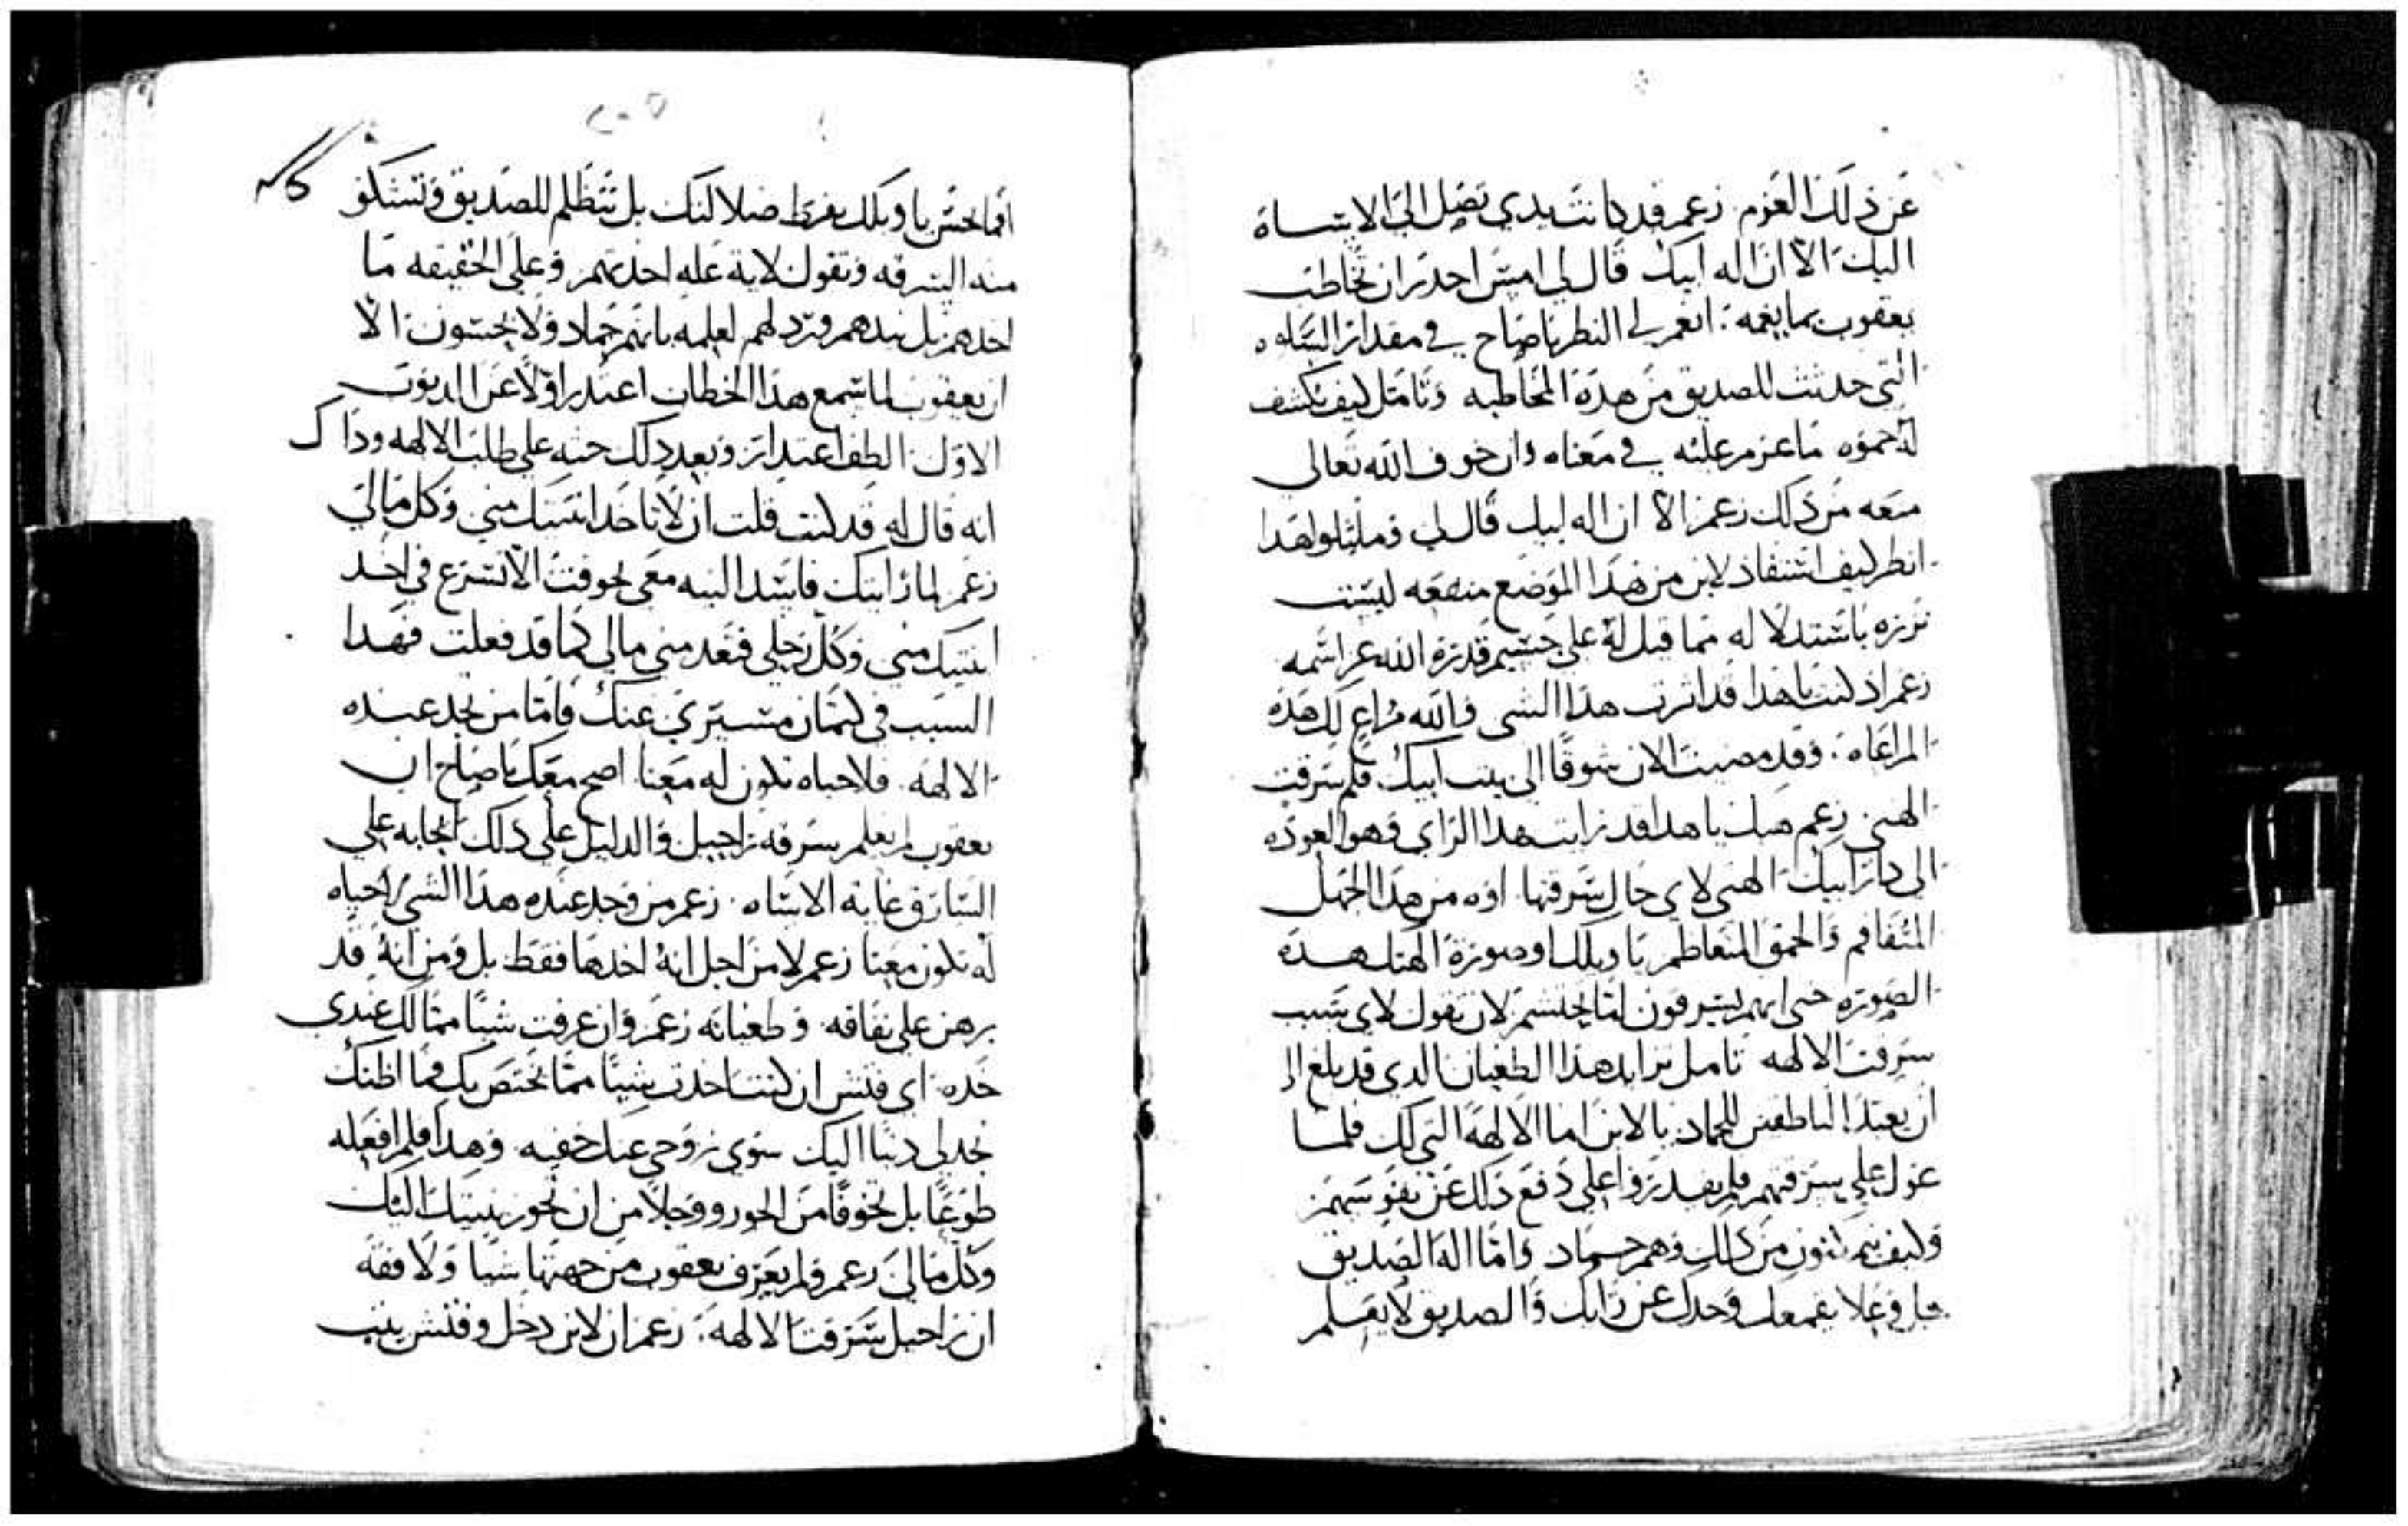 عن ذلك العزم زعم قد كانت يدي تصل الى الاساه
اليك الا ان اله ابيك قال لي امس احدر ان تخاطب
يعقوب بما يغمه انعم لي النظر يا صاح في مقدار السلوه
التي حدثت للصديق من هده المخاطبه وتامل كيف كشف
له حموه ما عزم عليه في معناه وان خوف الله تعالى
منعه من دلك زعم الا ان اله ابيك قال لي وما يتلو هدا
انظر كيف استفاد لابن من هدا الموضع منفعه ليست
نزره باستدلاله مما قيل له على جسيم قدرة الله عز اسمه
زعم اد كنت يا هدا قد اثرت هدا الشي والله مراع لك هده
المراعاه وقد مضيت الان شوقا الى بيت ابيك فلم سرقت
الهتي زعم هبك يا هدا قد رايت هدا الراي وهو العوده
الى دار ابيك الهتي لاي حال سرقتها اوه من هدا الجهل
المتفاقم والحمق المتعاظم يا ويلك او صورة الهتك هده
الصوره حتى انهم يسرقون اما تحتشم لان تقول لاي سبب
سرقت الالهه تامل تزايد هدا الطغيان الدي قد بلغ الى
ان يعبد الناطقين للجماد يا لابن اما الالهه التي لك فلما
عول على سرقتهم فلم يقدروا على دفع دلك عن نفوسهم
وكيف يتمكنون من دلك وهم جماد واما اله الصديق
جل وعلا فمعك وحدك عن رايك والصديق لا يعلم
افما تخش يا ويلك بفرط ضلالتك بل تتظلم للصديق وتشكو
منه السرقه وتقول لاية عله اخدتهم وعلى الحقيقه ما
اخدهم بل نبدهم وزدلهم لعلمه بانهم جماد ولا يحسون الا
ان يعقوب لما سمع هدا الخطاب اعتدر اولا عن الدنوب
الاول الطف اعتدار وبعد دلك حثه على طلب الالهه وداك
انه قال له قد كنت قلت ان لا تاخد ابنتيك مني وكل مالي
زعم لما رايتك فاسد النيه معي تخوفت الا تشرع في اخد
ابنتيك مني وكل رحلي فتعدمني مالي كما قد فعلت فهدا
السبب في كتمان مسيري عنك فاما من تجد عنده
الالهه فلا حياه تكون له معنا اصح معك يا صاح ان
يعقوب لم يعلم بسرقة راحيل والدليل على دلك ايجابه على
السارق غاية الاساه زعم من وجد عنده هدا الشي لا حياه
له تكون معنا زعم لا من اجل انه اخدها فقط بل ومن انه قد
برهن على نفاقه وطغيانه زعم وان عرفت شيا مما لك عندي
خده اي فتش ان كنت اخدت شيا مما يختص بك فما اظنك
تجد لي دنبا اليك سوى نزوحي عنك خفيه وهدا فلم افعله
طوعا بل تخوفا من الجور ووجلا من ان تحوز بنتيك اليك
وكل مالي زعم ولم يعرف يعقوب من جهتها شيا ولا فقه
ان راحيل سرقت الالهه زعم ان لابن دخل وفتش بيت